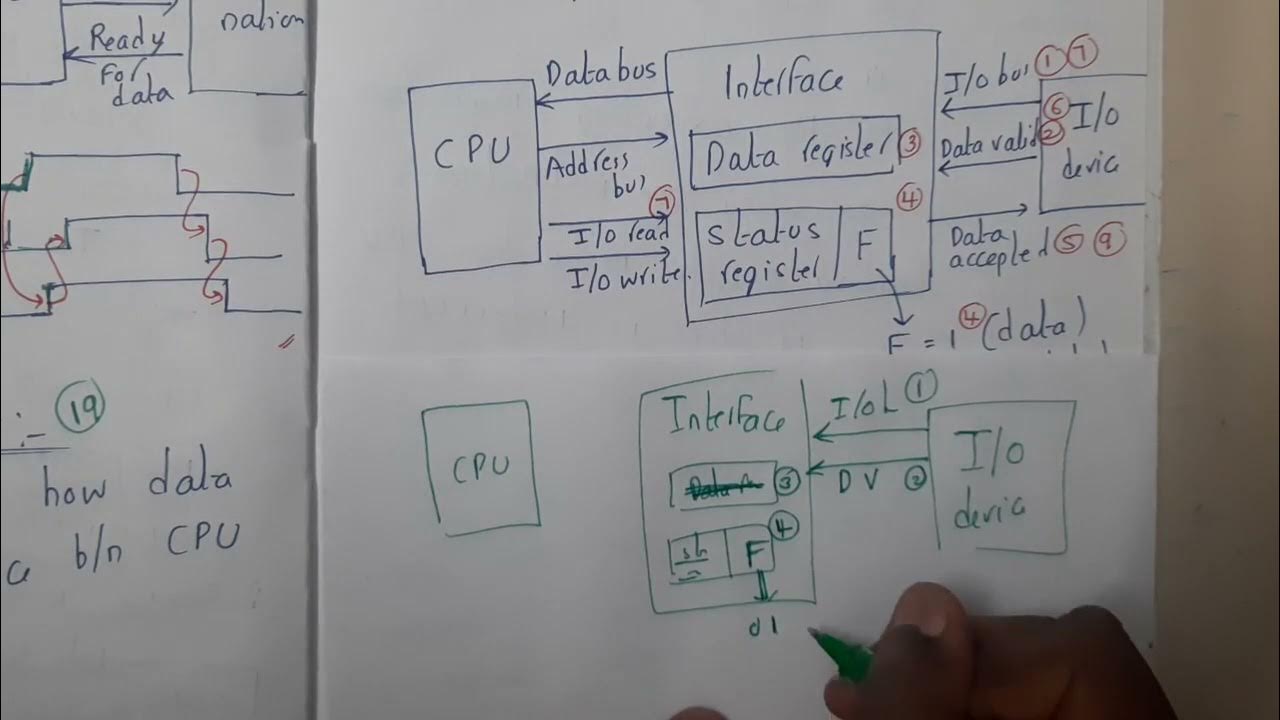 Ready
For
data
nation
:- 19
how data
b/n CPU
CPU
Data bus
Address
bus
7
I/O read
I/O write
Interface
Data register 3
4
status
register
F
F = 1 4 (data)
I/O bus 1 7
6
Data valid 2
Data
accepted 5 9
I/O
device
CPU
Interface
3
4
F
d1
I/O L 1
DV 2
I/O
device